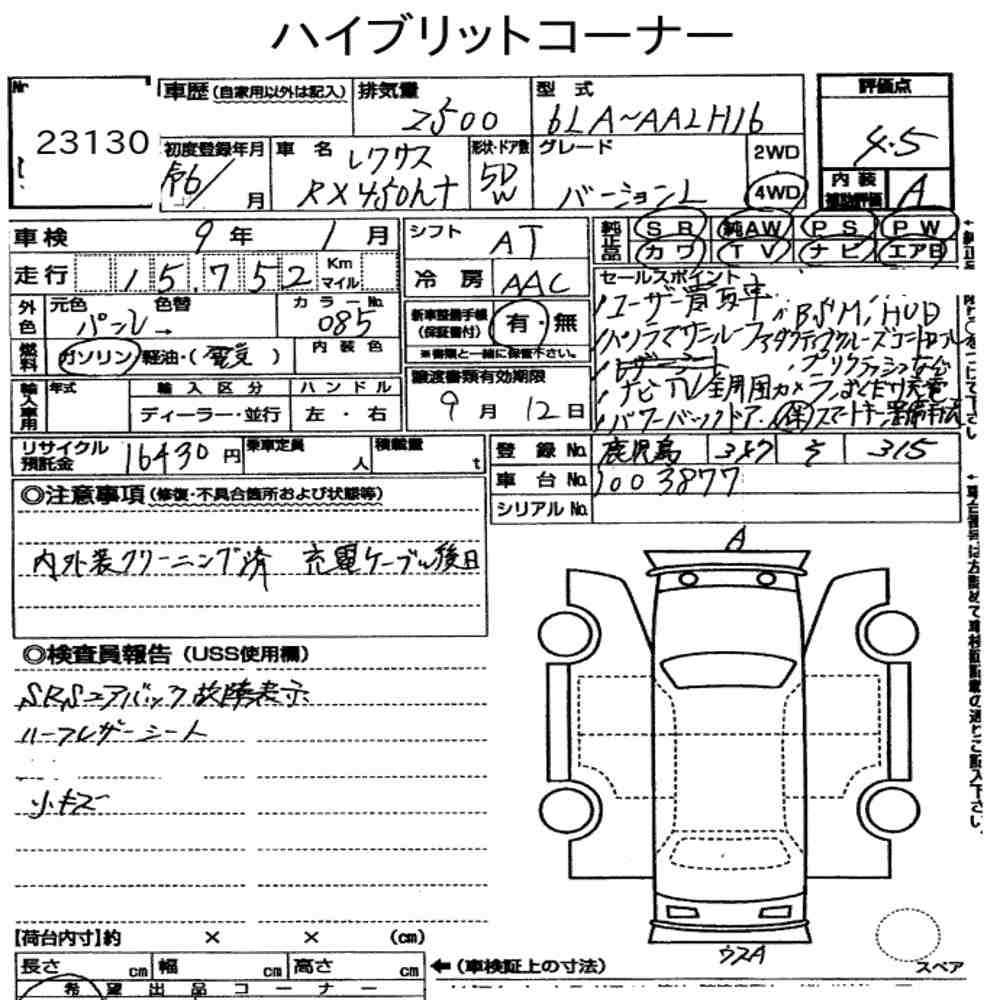 ハイブリットコーナー
Nr
23130
車歴(自家用以外は記入)
排気量
2500
型式
6LA~AALH16
評価点
4.5
初度登録年月
R6/
月
車名
レクサス
RX450h+
形状・ドア数
5D
W
グレード
バージョンL
2WD
4WD
内装
補助評価
A
車検
9年 1月
シフト
AT
純正品
SR 純AW PS PW
カワ TV ナビ エアB
走行
15,752
Km
マイル
冷房
AAC
セールスポイント
ユーザー買取車
BSM, HUD
パノラマサンルーフ アダクティブクルーズコントロール
レザーシート
プリクラッシュなど
ナビ TV 全周囲カメラ おくだけ充電
パワーバックドア 保 スマートキー
外色
元色
パール→
色替
カラーNo.
085
新車整備手帳
(保証書付)
有・無
※書類と一緒に保管下さい。
燃料
ガソリン 軽油・(電気)
内装色
譲渡書類有効期限
9月 12日
輸入車用
年式
輸入区分
ディーラー・並行
ハンドル
左・右
リサイクル
預託金
16430円
乗車定員
人
積載量
t
登録No.
鹿児島
347
そ
315
車台No.
1003877
シリアルNo.
◎注意事項(修復・不具合箇所および状態等)
内外装クリーニング済 充電ケーブル後日
◎検査員報告(USS使用欄)
SRSエアバック故障表示
ハーフレザーシート
小キズ
A
ウスA
スペア
【荷台内寸】約 × × (cm)
長さ cm 幅 cm 高さ cm
←(車検証上の寸法)
希望出品コーナー